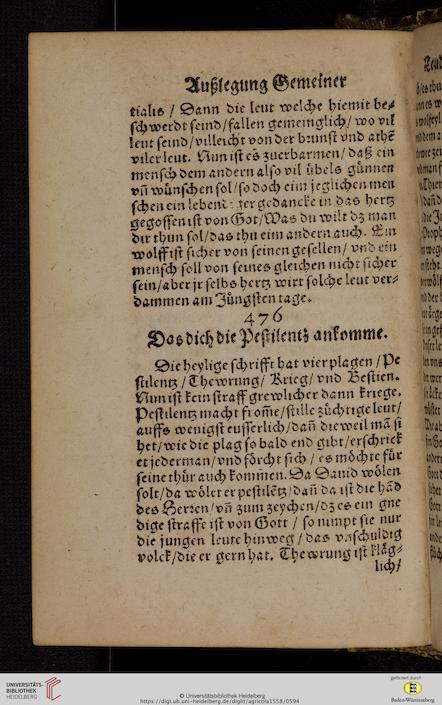 Außlegung Gemeiner
tialis / Dann die leut welche hiemit be⸗
schwerdt seind / fallen gemeinglich / wo vil
leut seind / villeicht von der brunst vnd athē
viler leut. Nun ist es zuerbarmen / daß ein
mensch dem andern also vil übels günnen
vñ wünschen sol / so doch eim jeglichen men
schen ein lebend zer gedancke in das hertz
gegossen ist von Got / Was du wilt dz man
dir thun sol / das thu eim andern auch. Ein
wolff ist sicher von seinen gesellen / vnd ein
mensch soll von seines gleichen nicht sicher
sein / aber jr selbs hertz wirt solche leut ver⸗
dammen am Jüngsten tage.
476
Das dich die Pestilentz ankomme.
Die heylige schrifft hat vier plagen / Pe
stilentz / Thewrung / Krieg / vnd Bestien.
Nun ist kein straff grewlicher dann kriege.
Pestilentz macht from̃e / stille züchtige leut /
auffs wenigst eusserlich / dañ die weil mā si
het / wie die plag so bald end gibt / erschrick
et jederman / vnd förcht sich / es möchte für
seine thür auch kommen. Da Dauid wölen
solt / da wölet er pestilētz / dañ da ist die hād
des Herren / vñ zum zeychen / dz es ein gne
dige straffe ist von Gott / so nimpt sie nur
die jungen leute hinweg / das vnschuldig
volck / die er gern hat. Thewrung ist kläg⸗
lich /
UNIVERSITÄTS-
BIBLIOTHEK
HEIDELBERG
© Universitätsbibliothek Heidelberg
https://digi.ub.uni-heidelberg.de/diglit/agricola1558/0594
gefördert durch
Baden-Württemberg